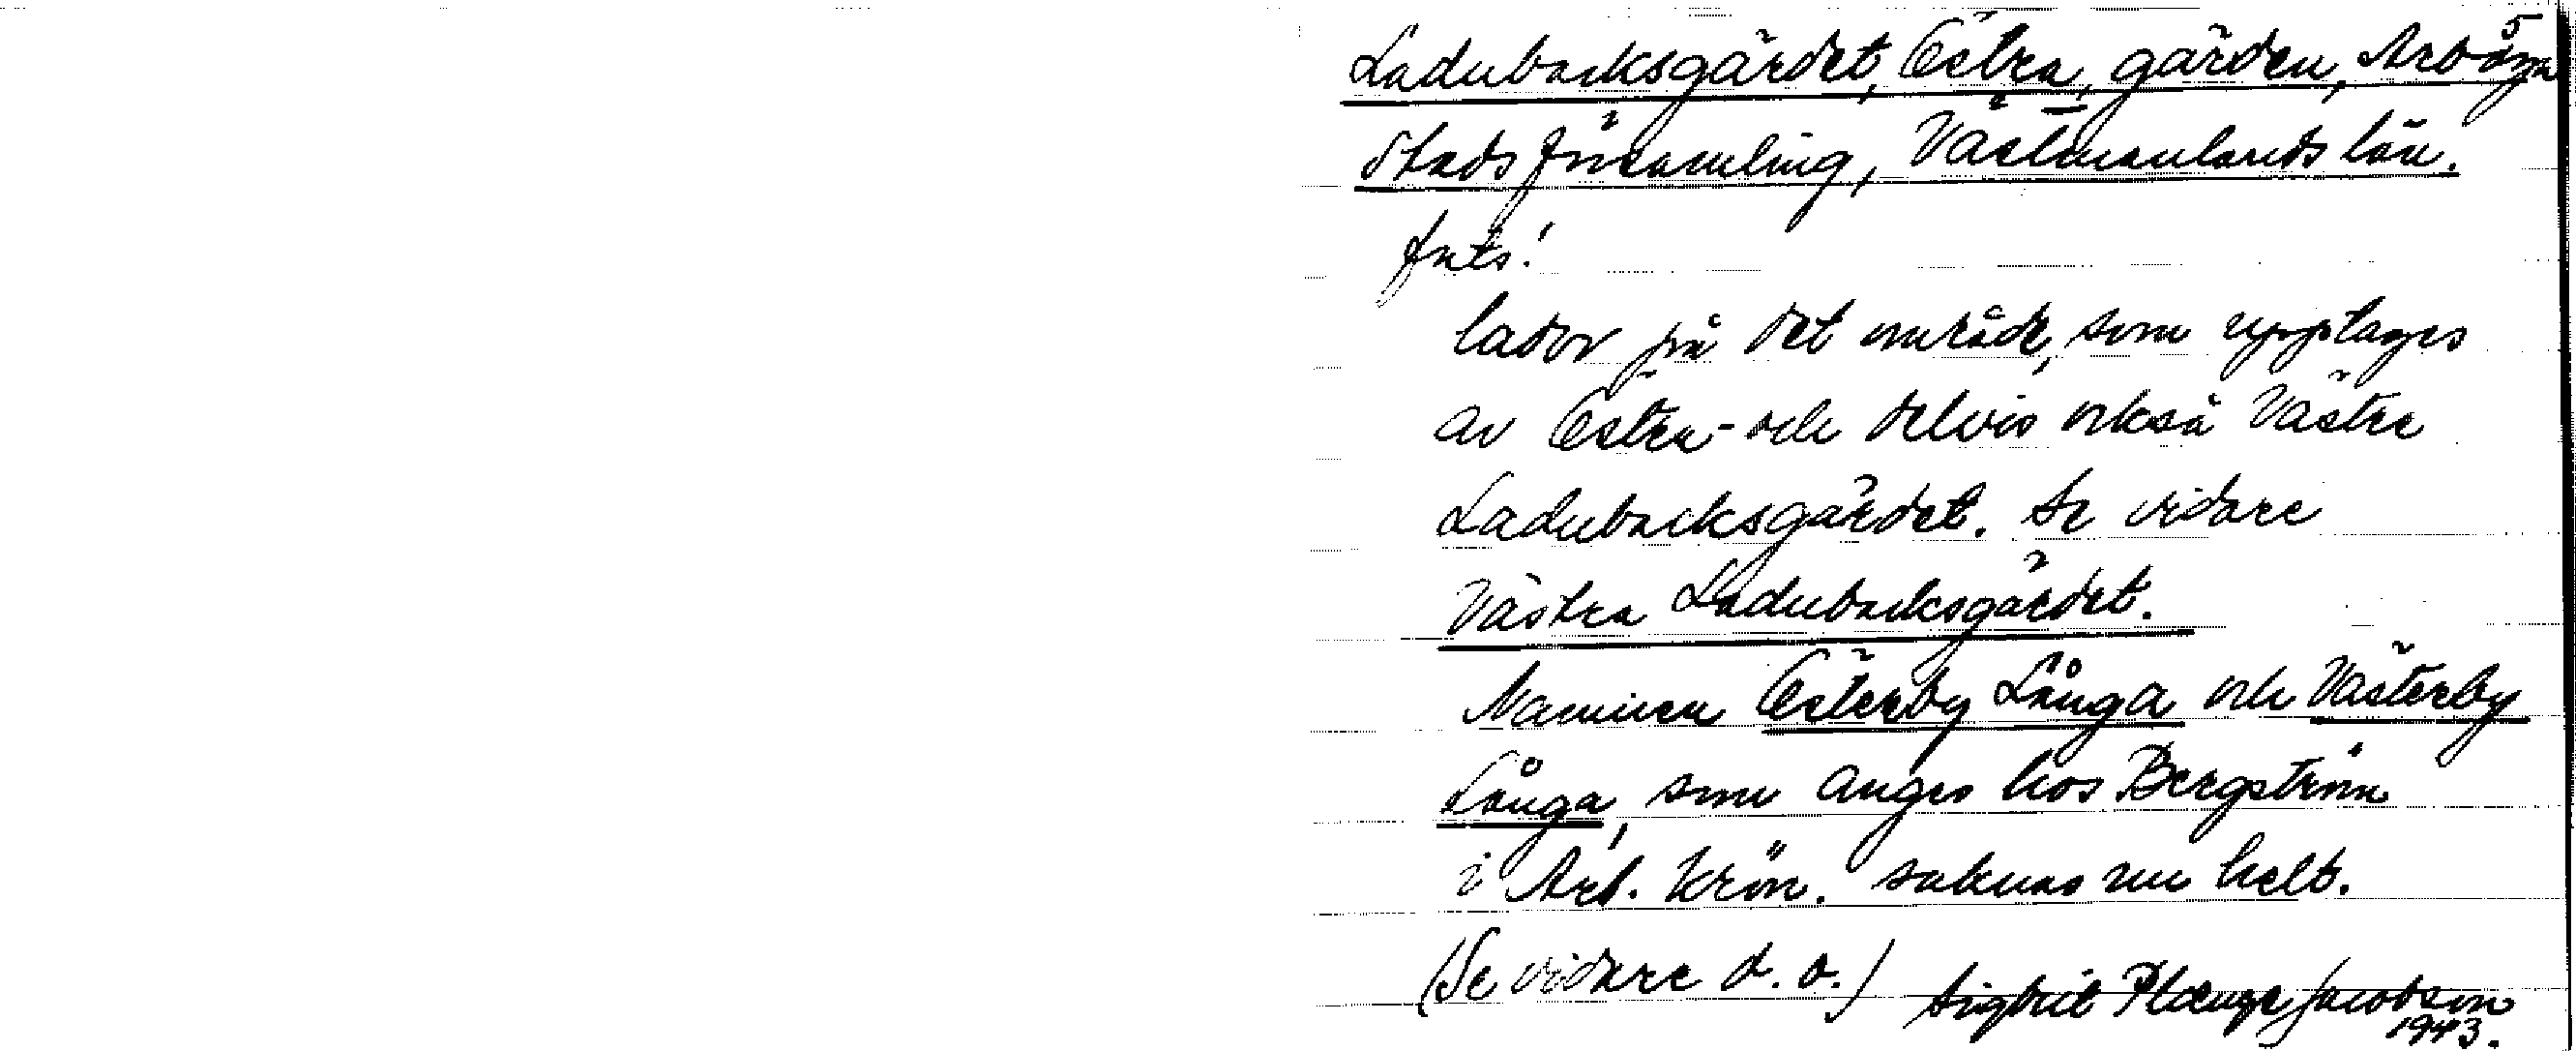 5
Ladubacksgärdet, Östra, gärden, Arboga
Stadsförsamling, Västmanlands län.
forts!
lador på det område, som upptages
av Östra- och delvis också Västra
Ladubacksgärdet. Se vidare
Västra Ladubacksgärdet.
Namnen Österby Långa och Västerby
Långa, som anges hos Bergström
i Arb. Krön. saknas nu helt.
(Se vidare d. o.) Sigbrit Plænge Jacobson
1943.